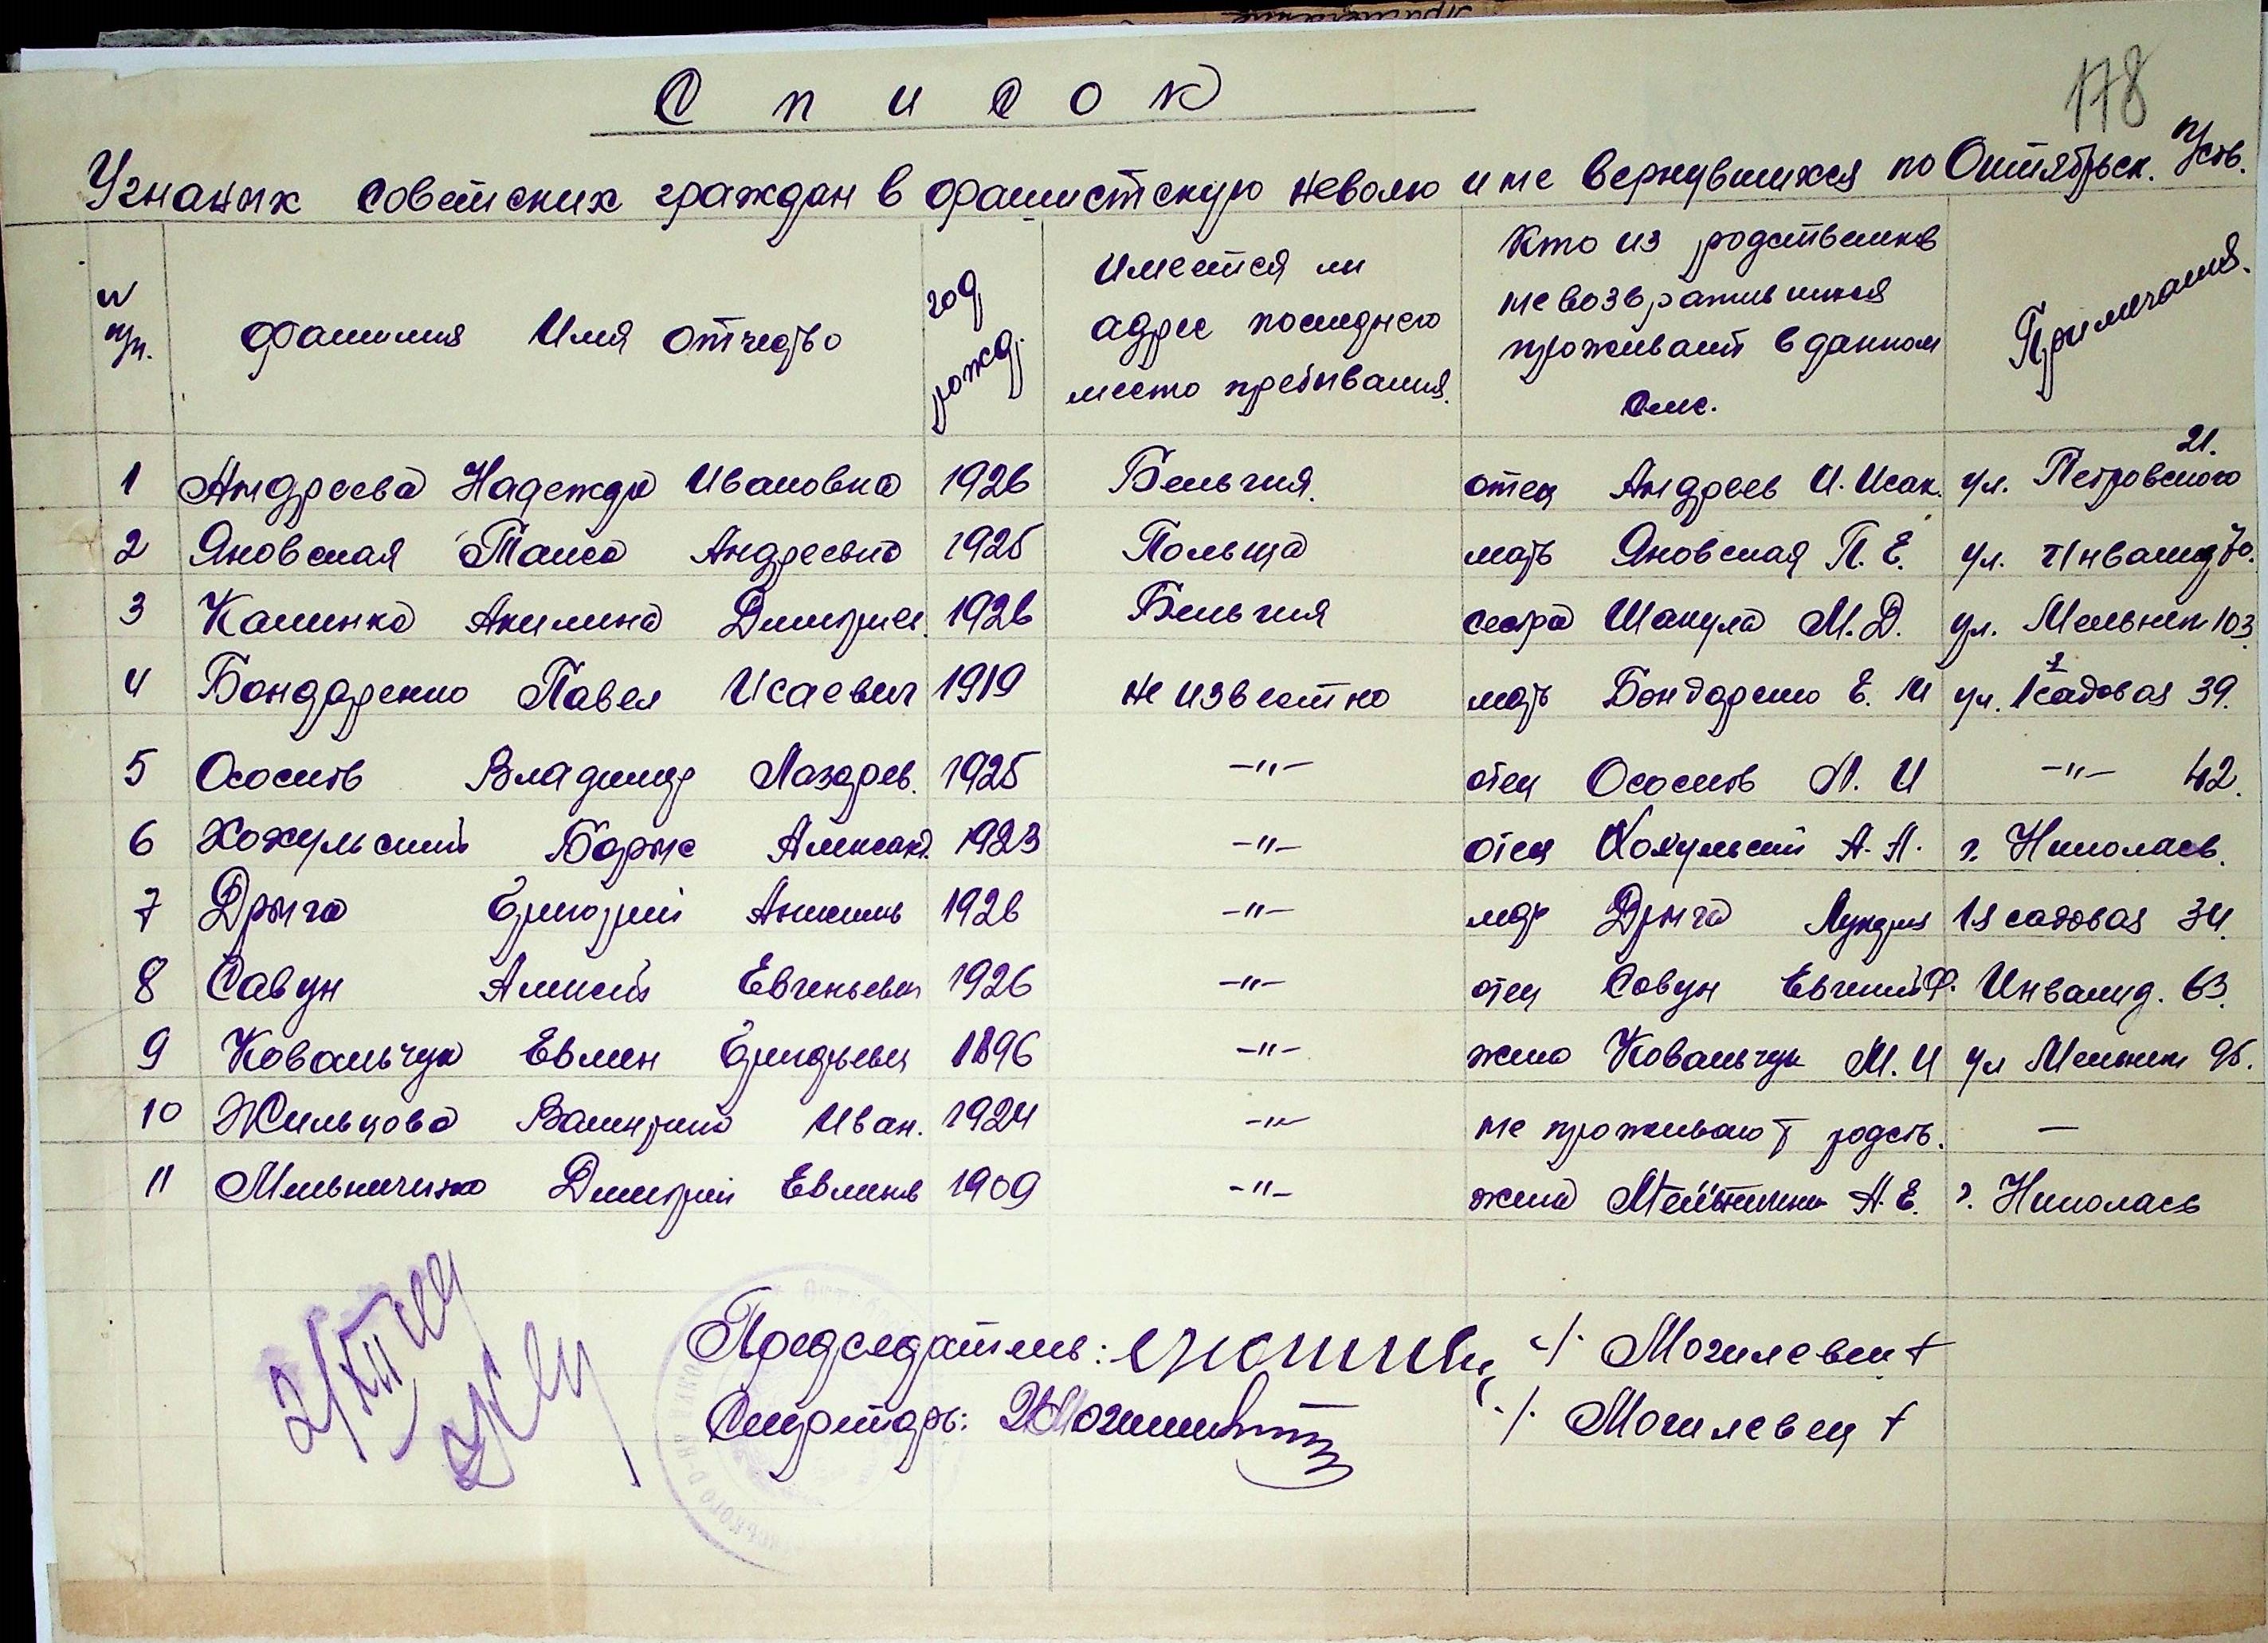 178
Список
Угнаных советских граждан в фашистскую неволю и не вернувшихся по Октябрьск. п/сов.
N п/п. Фамилия Имя Отчество год рожд. Имеется ли адрес последнего место пребывания. Кто из родствеников не возвратившихся проживает в данном селе. Примечания.
1 Андреева Надежда Ивановна 1926 Бельгия. отец Андреев И. Исак. ул. Петровского 21.
2 Яновская Таиса Андреевна 1925 Польща мать Яновская П. Е. ул. Инвалид 70.
3 Калинка Акилина Дмитриев. 1926 Бельгия сестра Шакула М. Д. ул. Мельнич 103
4 Бондаренко Павел Исаевич 1919 не известно мать Бондаренко Е. М ул. 1я садовая 39.
5 Ососков Владимир Лазарев. 1925 -"- отец Ососков Л. И -"- 42.
6 Хохульский Борис Александ. 1923 -"- отец Хохульский А. А. г. Николаев.
7 Дрыга Григорий Анисимов 1926 -"- мать Дрыга Лукерия 1я садовая 34.
8 Савун Алексей Евгеньевич 1926 -"- отец Савун Евгений Ф. Инвалид. 63.
9 Ковальчук Евмен Григорьевич 1896 -"- жена Ковальчук М. И ул Мельнич 95.
10 Жильцова Валентина Иван. 1924 -"- не проживают родств. —
11 Мельниченко Дмитрий Евменов 1909 -"- жена Мельниченко А. Е. г. Николаев
2/XII
Председатель: /Могилевец/
Секретарь: /Могилевец/